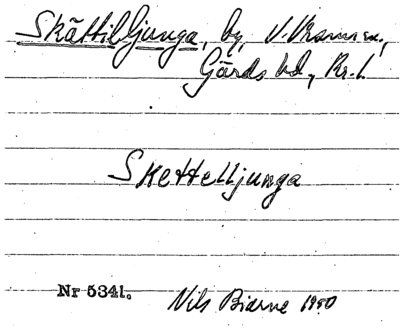 Skättilljunga, by, V. Vram sn,
Gärds hd, Kr. l.
Skettelljunga
Nr 5341.
Nils Bjarne 1950